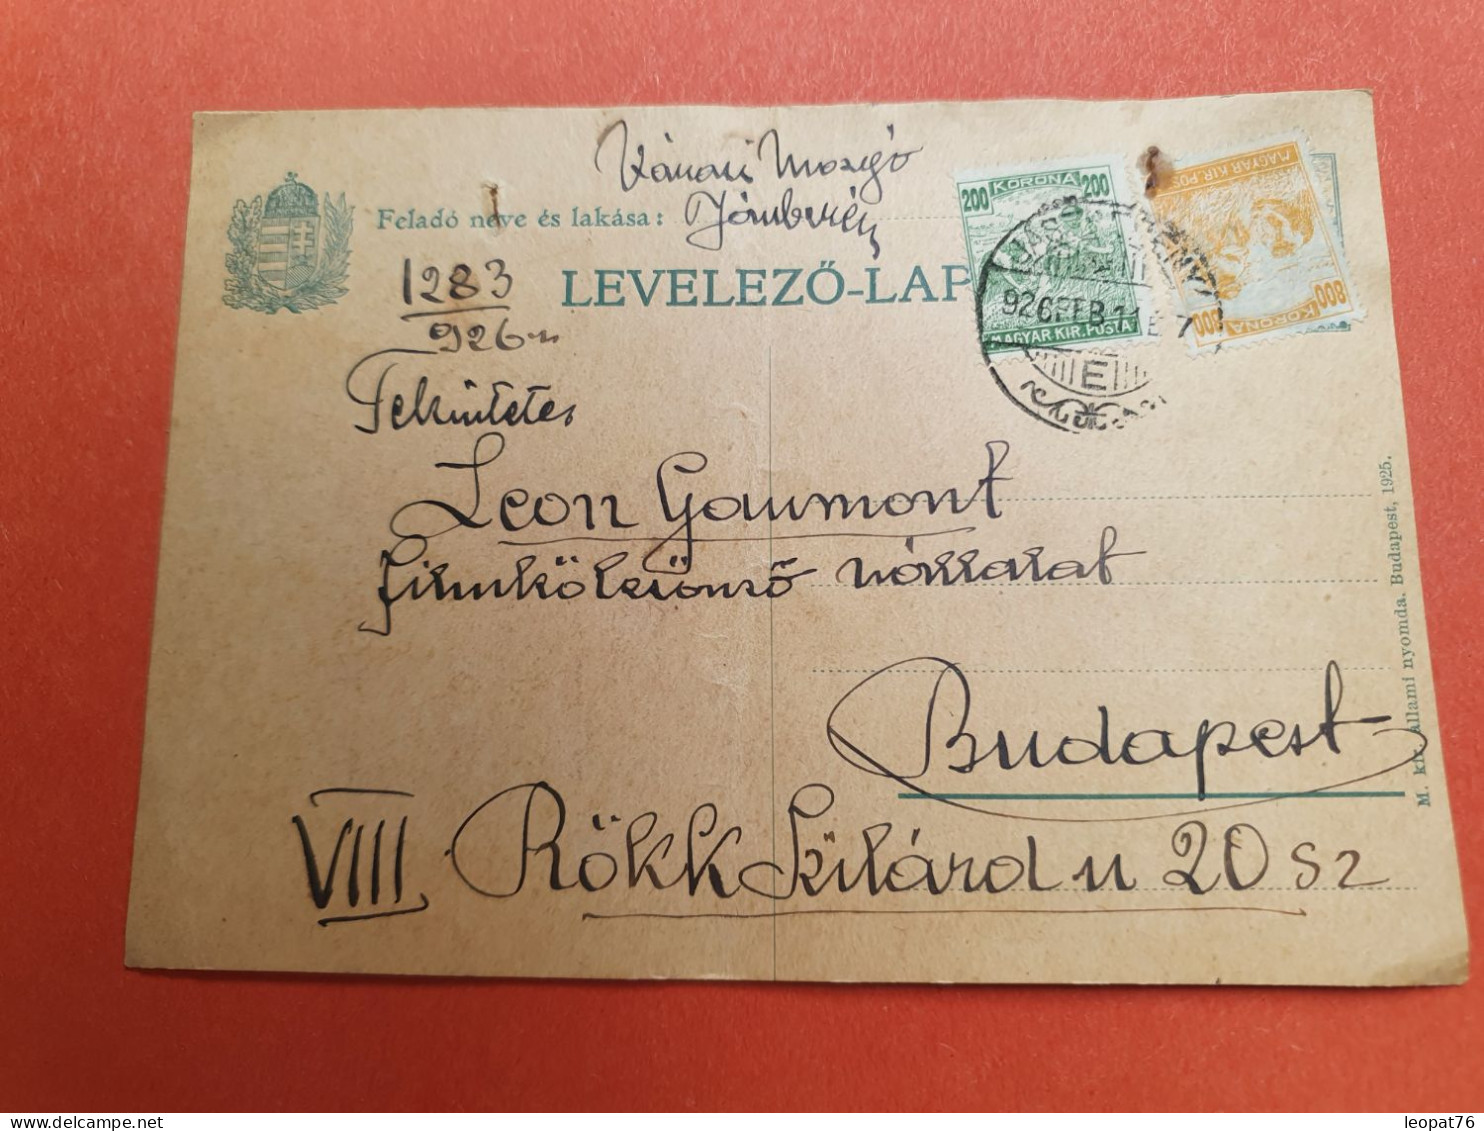 Városi Mozgó
Feladó neve és lakása: Jászberény
1283
926
LEVELEZŐ-LAP
200 KORONA 200
MAGYAR KIR. POSTA
MAGYAR KIR. POS
800 KORONA 800
926 FEB
E
Tekintetes
Leon Gaumont
filmkölcsönző vállalat
Budapest
VIII Rökk Szilárd u 20 sz
M. kir. állami nyomda. Budapest, 1925.
leopat76